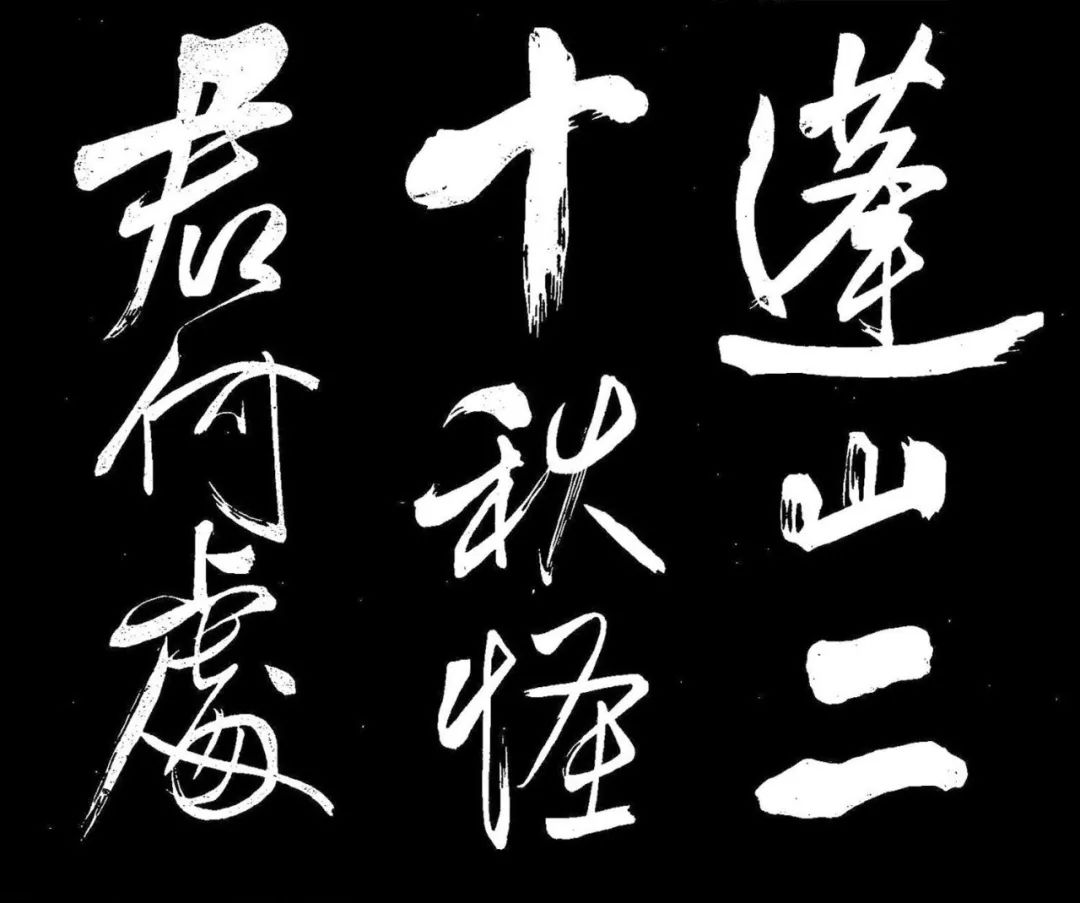 蓬山二
十秋怪
君何處